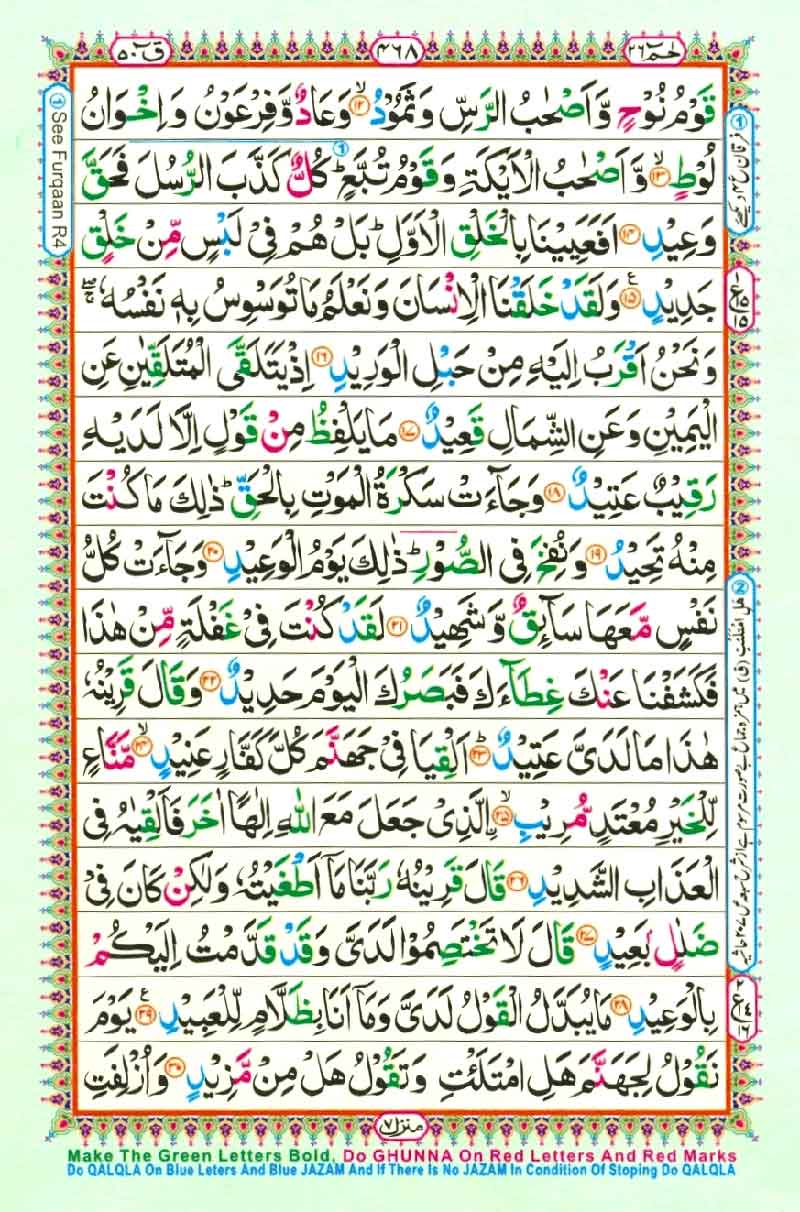 قٓ ۵۰
۴۶۸
حٰمٓ ۲۶
قَوْمُ نُوْحٍ وَّاَصْحٰبُ الرَّسِّ وَثَمُوْدُ ۙ۱۲ وَعَادٌ وَّفِرْعَوْنُ وَاِخْوَانُ
لُوْطٍ ۙ۱۳ وَّاَصْحٰبُ الْاَيْكَةِ وَقَوْمُ تُبَّعٍ ؕ كُلٌّ كَذَّبَ الرُّسُلَ فَحَقَّ
وَعِيْدِ ۱۴ اَفَعَيِيْنَا بِالْخَلْقِ الْاَوَّلِ ؕ بَلْ هُمْ فِيْ لَبْسٍ مِّنْ خَلْقٍ
جَدِيْدٍ ۱۵ وَلَقَدْ خَلَقْنَا الْاِنْسَانَ وَنَعْلَمُ مَا تُوَسْوِسُ بِهٖ نَفْسُهٗ ۖۚ
وَنَحْنُ اَقْرَبُ اِلَيْهِ مِنْ حَبْلِ الْوَرِيْدِ ۱۶ اِذْ يَتَلَقَّى الْمُتَلَقِّيٰنِ عَنِ
الْيَمِيْنِ وَعَنِ الشِّمَالِ قَعِيْدٌ ۱۷ مَا يَلْفِظُ مِنْ قَوْلٍ اِلَّا لَدَيْهِ
رَقِيْبٌ عَتِيْدٌ ۱۸ وَجَآءَتْ سَكْرَةُ الْمَوْتِ بِالْحَقِّ ؕ ذٰلِكَ مَا كُنْتَ
مِنْهُ تَحِيْدُ ۱۹ وَنُفِخَ فِي الصُّوْرِ ؕ ذٰلِكَ يَوْمُ الْوَعِيْدِ ۲۰ وَجَآءَتْ كُلُّ
نَفْسٍ مَّعَهَا سَآئِقٌ وَّشَهِيْدٌ ۲۱ لَقَدْ كُنْتَ فِيْ غَفْلَةٍ مِّنْ هٰذَا
فَكَشَفْنَا عَنْكَ غِطَآءَكَ فَبَصَرُكَ الْيَوْمَ حَدِيْدٌ ۲۲ وَقَالَ قَرِيْنُهٗ
هٰذَا مَا لَدَيَّ عَتِيْدٌ ؕ۲۳ اَلْقِيَا فِيْ جَهَنَّمَ كُلَّ كَفَّارٍ عَنِيْدٍ ۙ۲۴ مَّنَّاعٍ
لِّلْخَيْرِ مُعْتَدٍ مُّرِيْبٍ ۙ۲۵ اِۨلَّذِيْ جَعَلَ مَعَ اللّٰهِ اِلٰهًا اٰخَرَ فَاَلْقِيٰهُ فِي
الْعَذَابِ الشَّدِيْدِ ۲۶ قَالَ قَرِيْنُهٗ رَبَّنَا مَآ اَطْغَيْتُهٗ وَلٰكِنْ كَانَ فِيْ
ضَلٰلٍ بَعِيْدٍ ۲۷ قَالَ لَا تَخْتَصِمُوْا لَدَيَّ وَقَدْ قَدَّمْتُ اِلَيْكُمْ
بِالْوَعِيْدِ ۲۸ مَا يُبَدَّلُ الْقَوْلُ لَدَيَّ وَمَآ اَنَا بِظَلَّامٍ لِّلْعَبِيْدِ ۲۹ يَوْمَ
نَقُوْلُ لِجَهَنَّمَ هَلِ امْتَلَئْتِ وَتَقُوْلُ هَلْ مِنْ مَّزِيْدٍ ۳۰ وَاُزْلِفَتِ
① See Furqaan R4
منزل ۷
Make The Green Letters Bold. Do GHUNNA On Red Letters And Red Marks
Do QALQLA On Blue Leters And Blue JAZAM And If There Is No JAZAM In Condition Of Stoping Do QALQLA